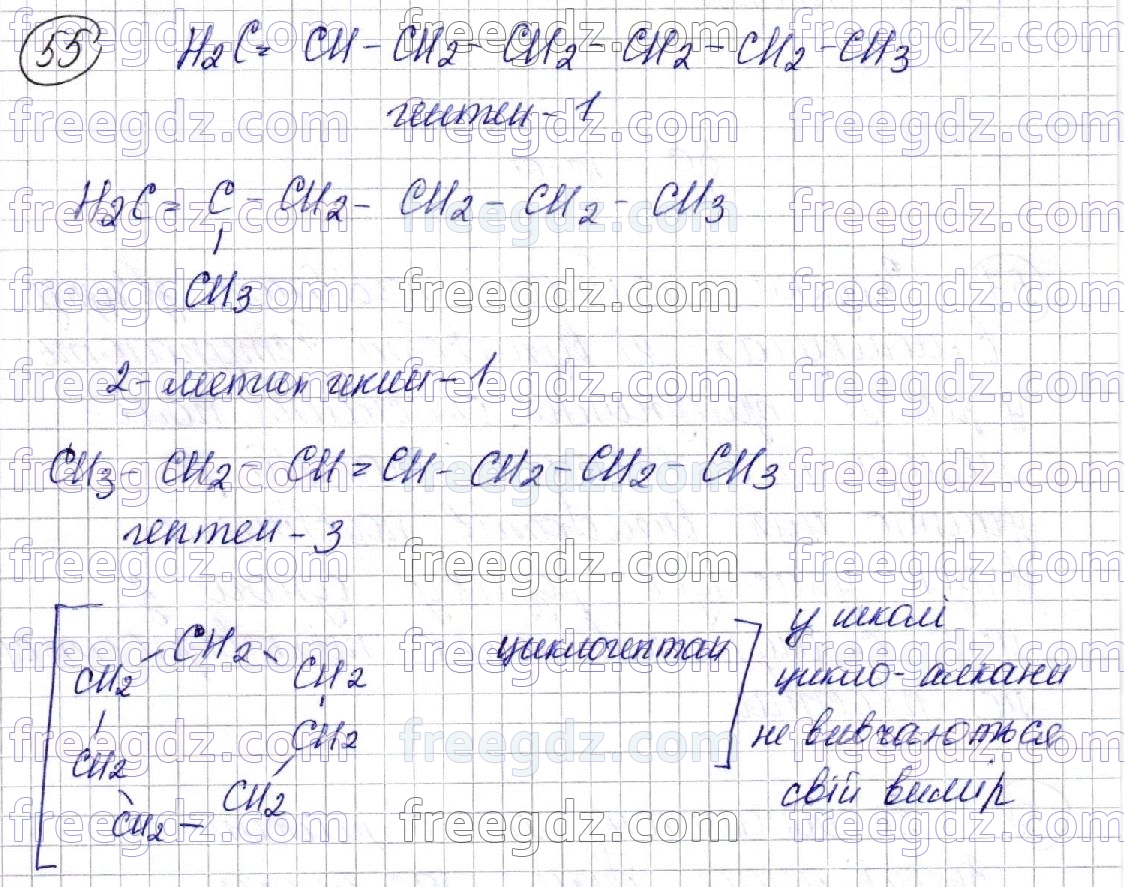 55
H2C= CH - CH2 - CH2 - CH2 - CH2 - CH3
гептен - 1
H2C = C - CH2 - CH2 - CH2 - CH3
CH3
2-метил гексен-1
CH3 - CH2 - CH = CH - CH2 - CH2 - CH3
гептен - 3
CH2
CH2
CH2
CH2
CH2
CH2 -
CH2
циклогептан
у школі
цикло-алкани
не вивчаються
свій
freegdz.com